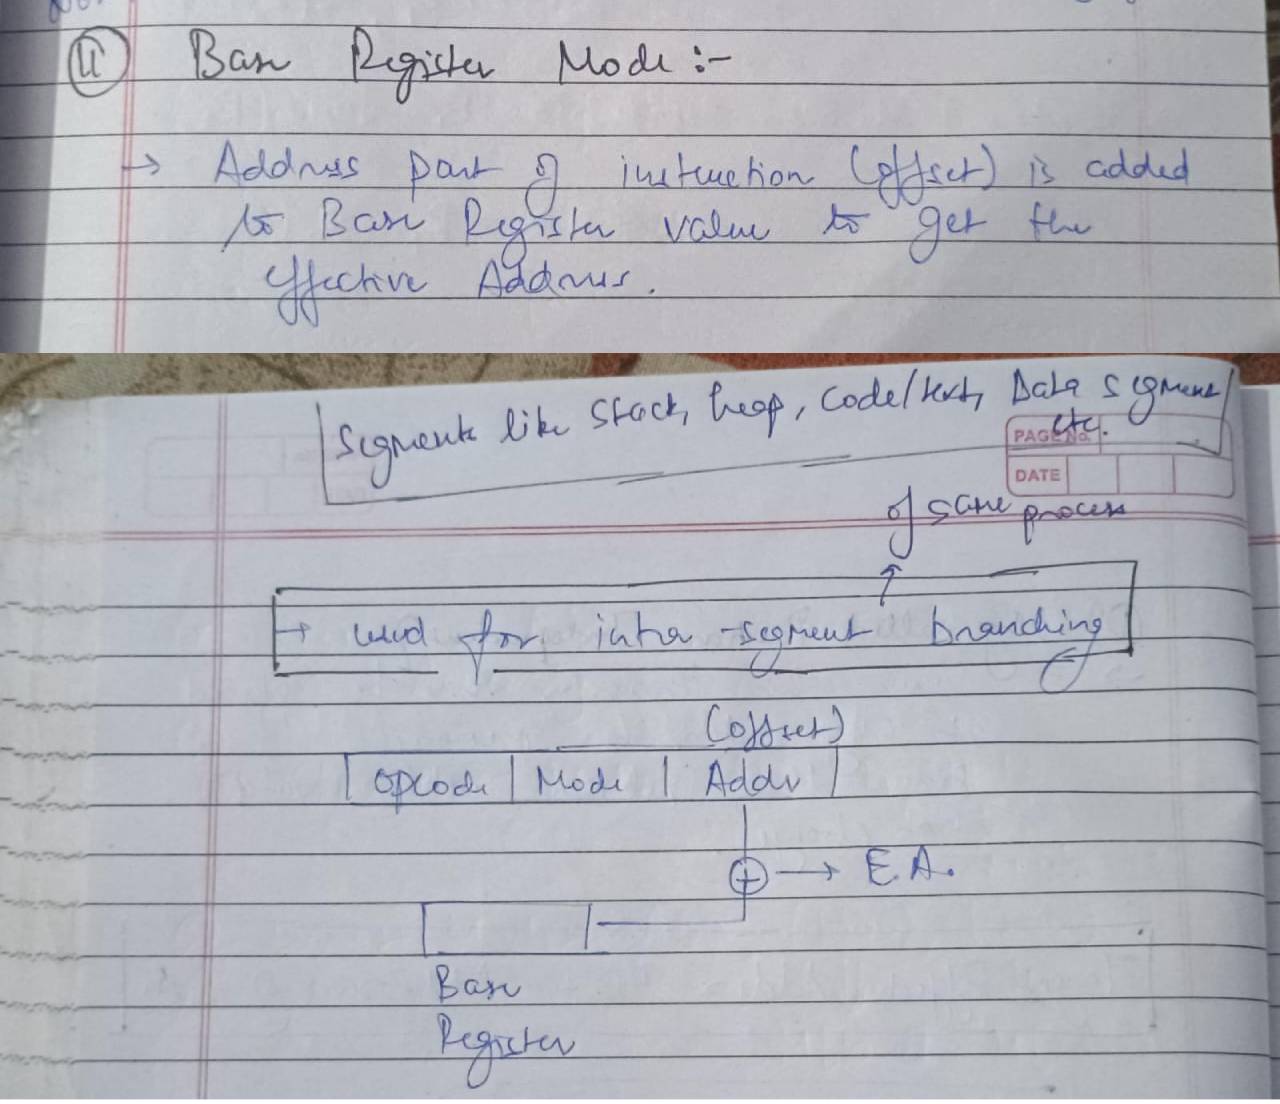 11 Base Register Mode :-
→ Address part of instruction (offset) is added
to Base Register value to get the
effective Address.
Segments like Stack, heap, code/text, Data segment
etc.
PAGE No.
DATE
of same process
→ used for intra-segment branching
(offset)
Opcode | Mode | Addr
+ → E.A.
Base
Register